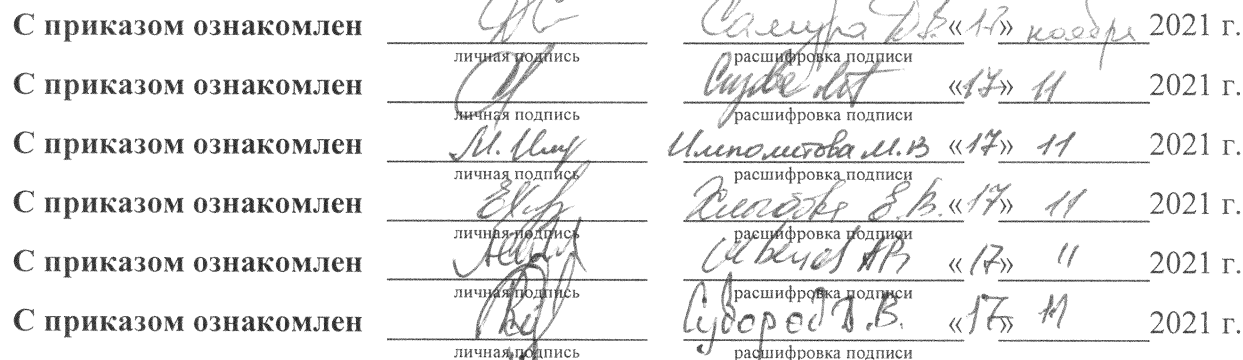 С приказом ознакомлен Самура Д.В. «17» ноября 2021 г.
личная подпись расшифровка подписи
С приказом ознакомлен «17» 11 2021 г.
личная подпись расшифровка подписи
С приказом ознакомлен Имполитова М.В «17» 11 2021 г.
личная подпись расшифровка подписи
С приказом ознакомлен Е.В. «17» 11 2021 г.
личная подпись расшифровка подписи
С приказом ознакомлен «17» 11 2021 г.
личная подпись расшифровка подписи
С приказом ознакомлен Суворов Д.В. «17» 11 2021 г.
личная подпись расшифровка подписи